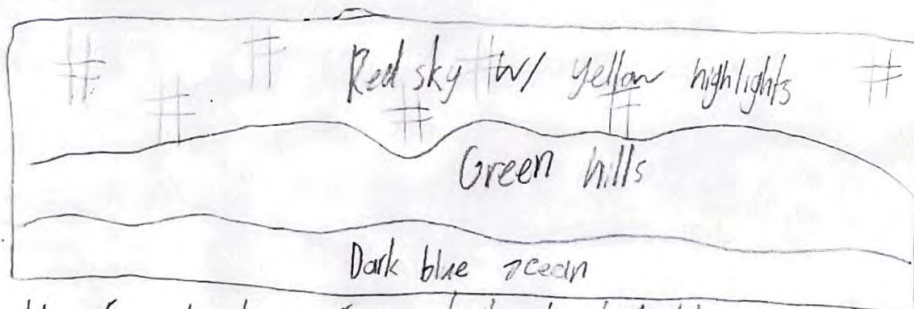 Red sky w/ yellow highlights
Green hills
Dark blue ocean